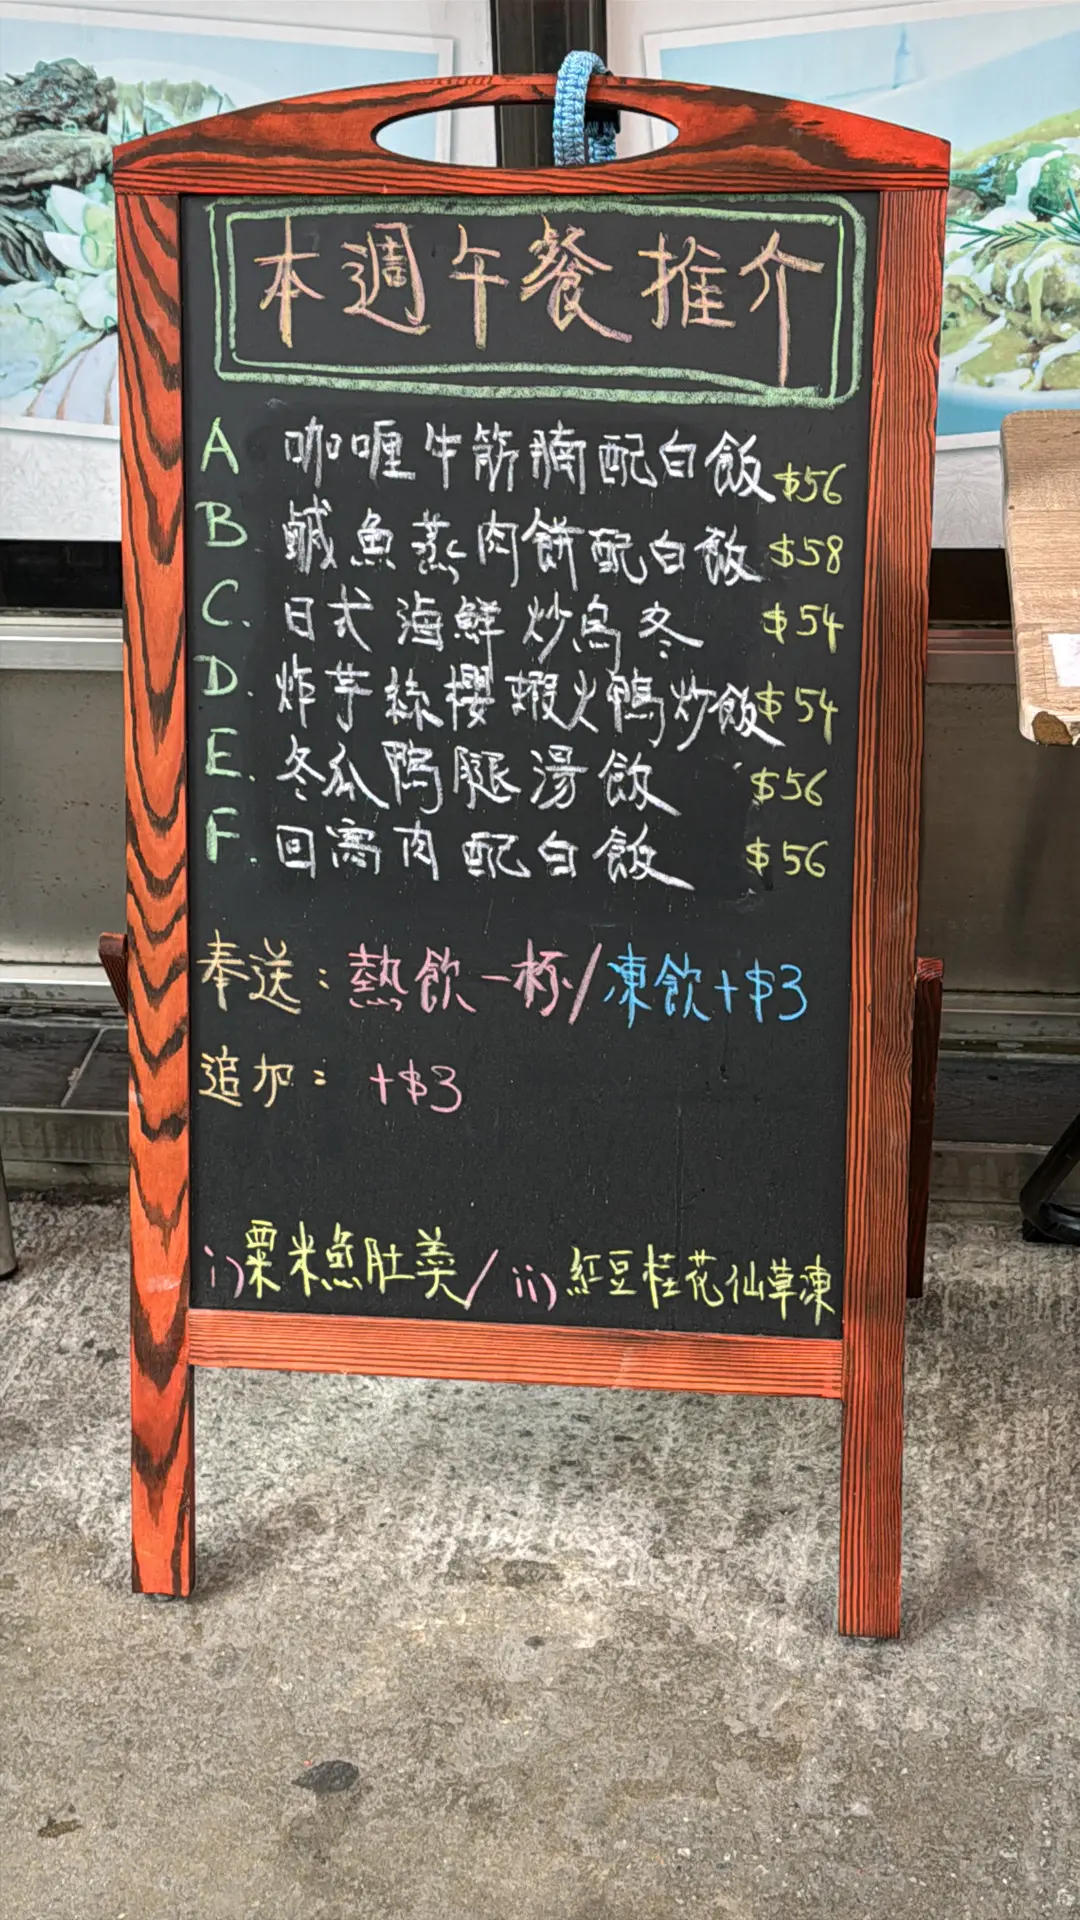 本週午餐推介
A 咖喱牛筋腩配白飯 $56
B 鹹魚蒸肉餅配白飯 $58
C. 日式海鮮炒烏冬 $54
D. 炸芋絲櫻蝦火鴨炒飯 $54
E. 冬瓜鴨腿湯飯 $56
F. 回窩肉配白飯 $56
奉送：熱飲一杯/凍飲+$3
追加： +$3
i)粟米魚肚羹/ ii)紅豆桂花仙草凍